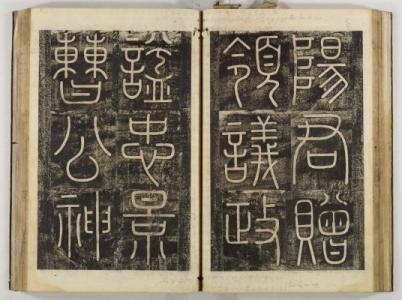 陽君贈
領議政
諡忠景
曹公神